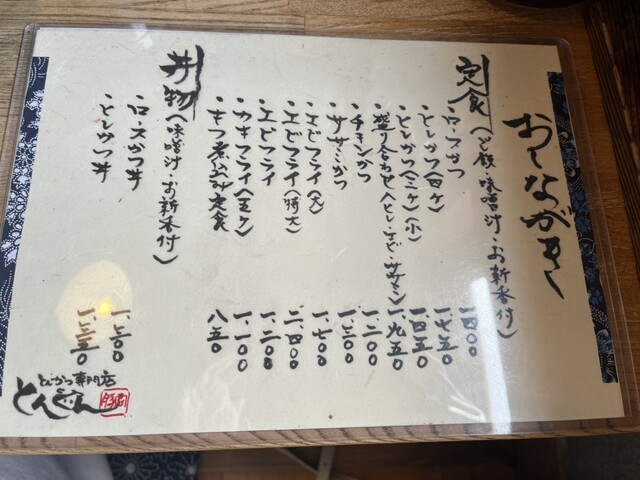 おしながき
定食(ご飯・味噌汁・お新香付)
・ロースかつ 一、四〇〇
・とんかつ(四ケ) 一、七五〇
・とんかつ(三ケ)(小) 一、四五〇
・盛り合わせ(とん・エビ・ササミ) 一、九五〇
・チキンかつ 一、二〇〇
・ササミかつ 一、二〇〇
・エビフライ(大) 一、七〇〇
・エビフライ(特大) 二、四〇〇
・エビフライ 一、二〇〇
・カキフライ(五ケ) 一、一〇〇
・もつ煮込み定食 八五〇
丼物(味噌汁・お新香付)
・ロースかつ丼
・とんかつ丼
とんかつ専門店